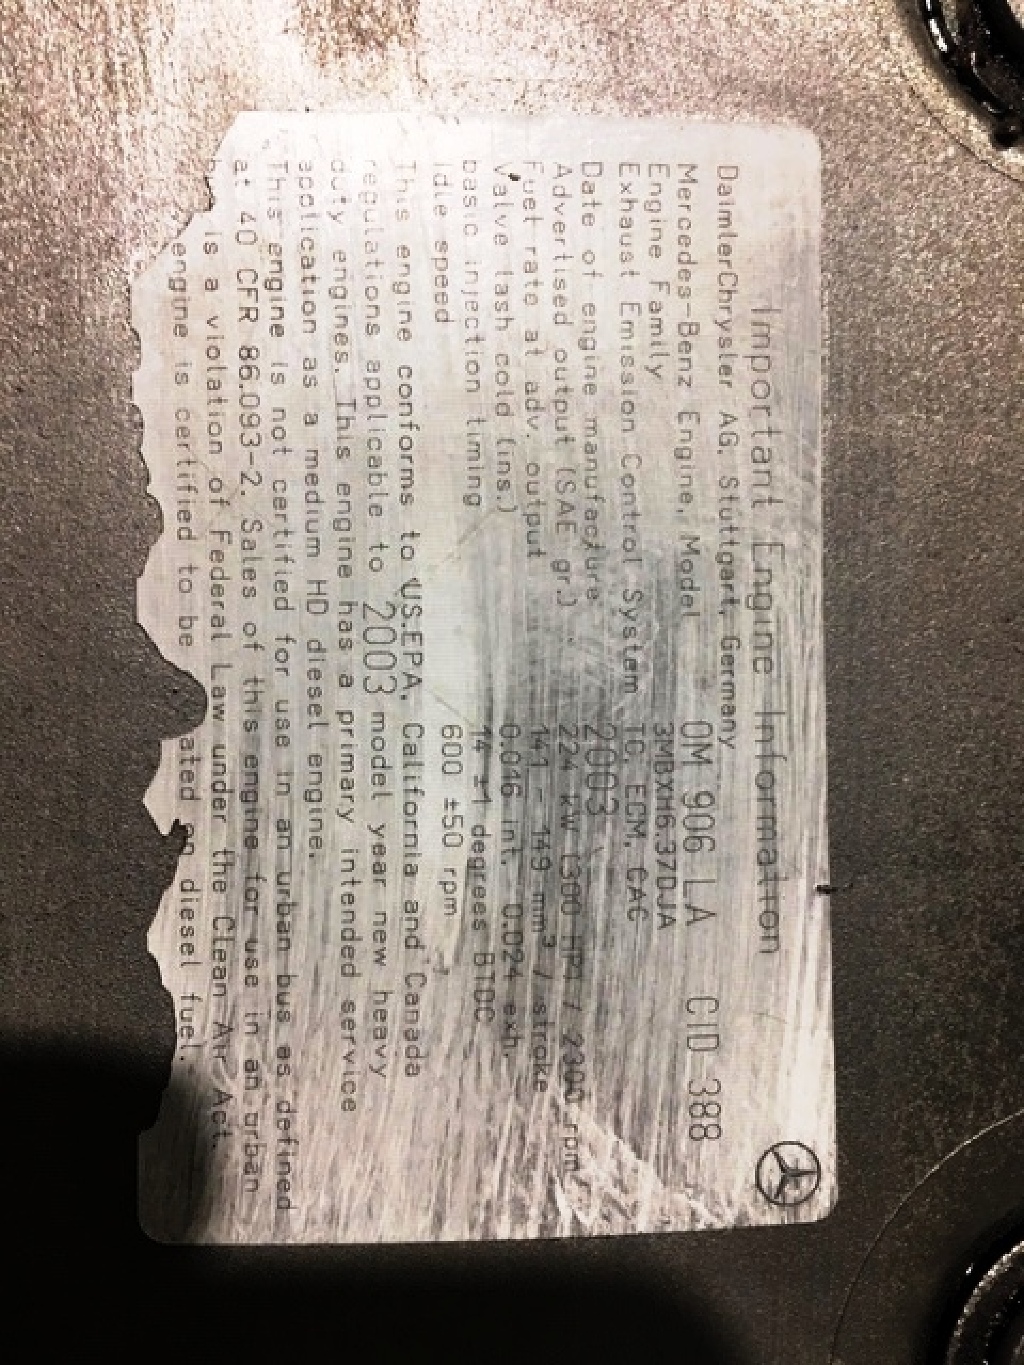 Important Engine Information
DaimlerChrysler AG, Stuttgart, Germany
Mercedes-Benz Engine, Model OM 906 LA CID 388
Engine Family 3MBXH6.37DJA
Exhaust Emission Control System TC, ECM, CAC
Date of engine manufacture 2003
Advertised output (SAE gr.) 224 KW (300 HP) / 2300 rpm
Fuel rate at adv. output 141 - 149 mm³ / stroke
Valve lash cold (ins.) 0.016 int. 0.024 exh.
basic injection timing 14 ±1 degrees BTDC
idle speed 600 ±50 rpm
This engine conforms to US.EPA, California and Canada
regulations applicable to 2003 model year new heavy
duty engines. This engine has a primary intended service
application as a medium HD diesel engine.
This engine is not certified for use in an urban bus as defined
at 40 CFR 86.093-2. Sales of this engine for use in an urban
is a violation of Federal Law under the Clean Air Act.
engine is certified to be ated on diesel fuel.